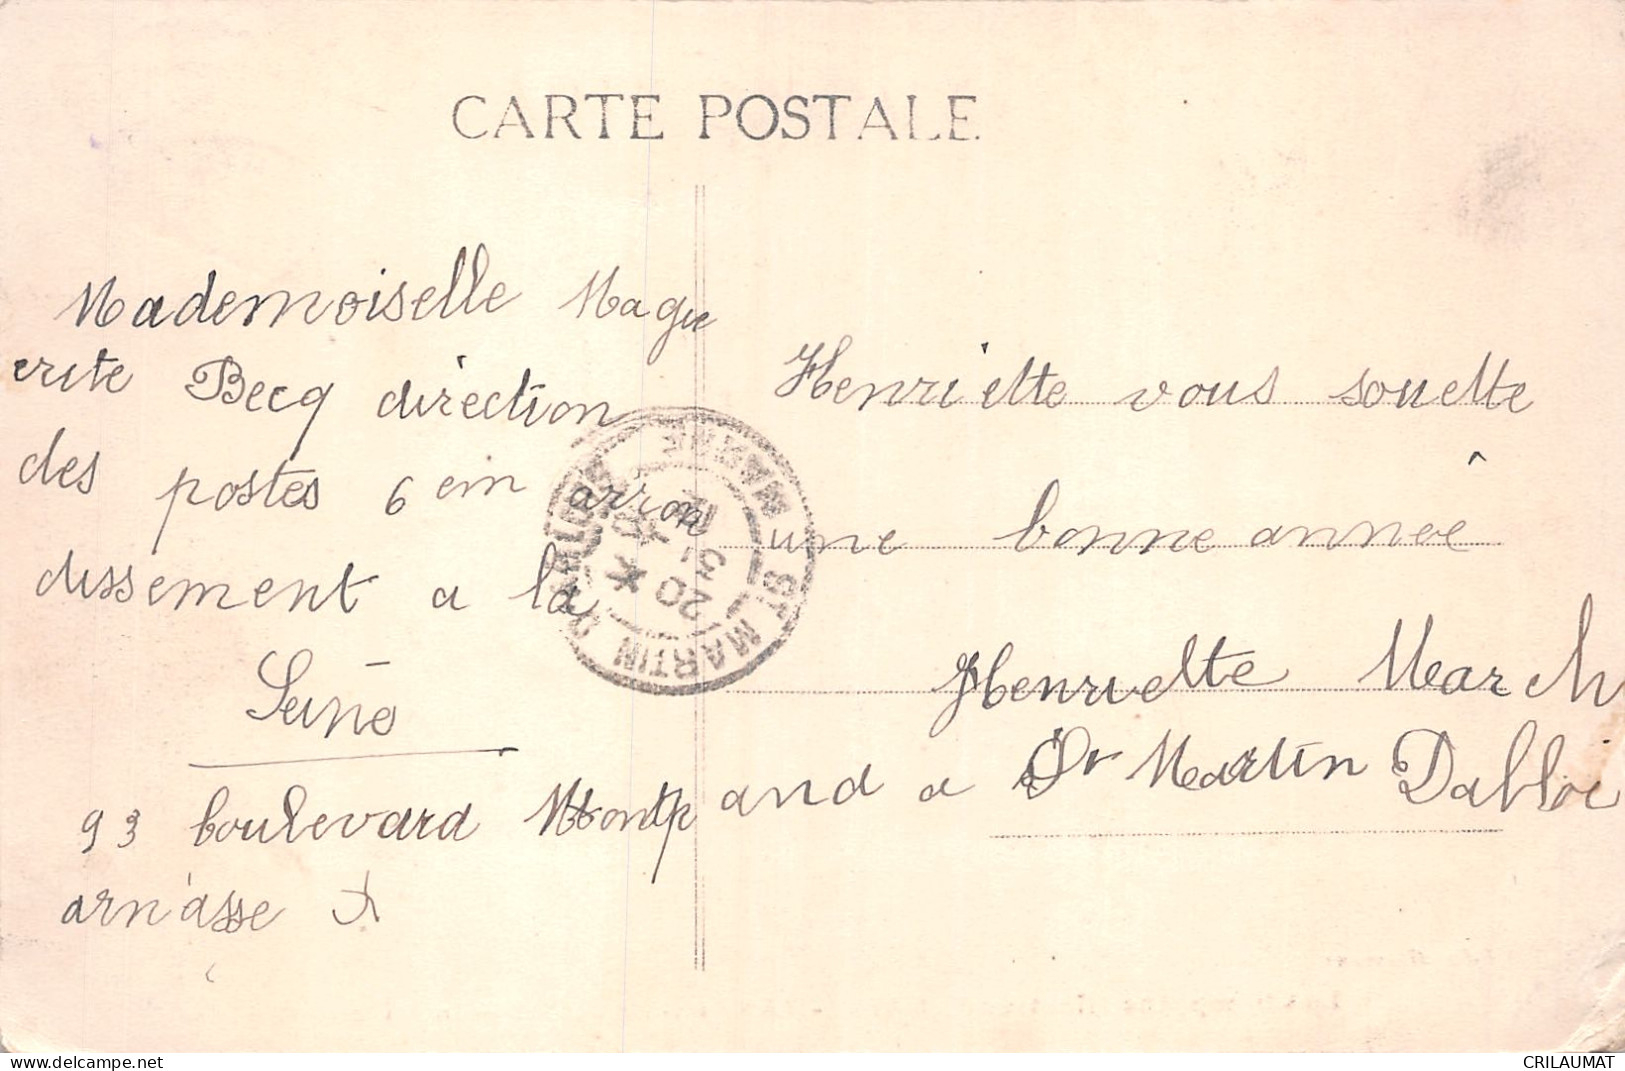 CARTE POSTALE
Mademoiselle Magu
erite Becq direction
des postes 6 em arron
dissement a la
Seine
93 boulevard Montp
arnasse
Henriette vous souette
une bonne année
Henriette March
and a St Martin Dabloi
ST MARTIN D'ABLOIS
MARNE
20 *
31
12
CRILAUMAT
delcampe.net